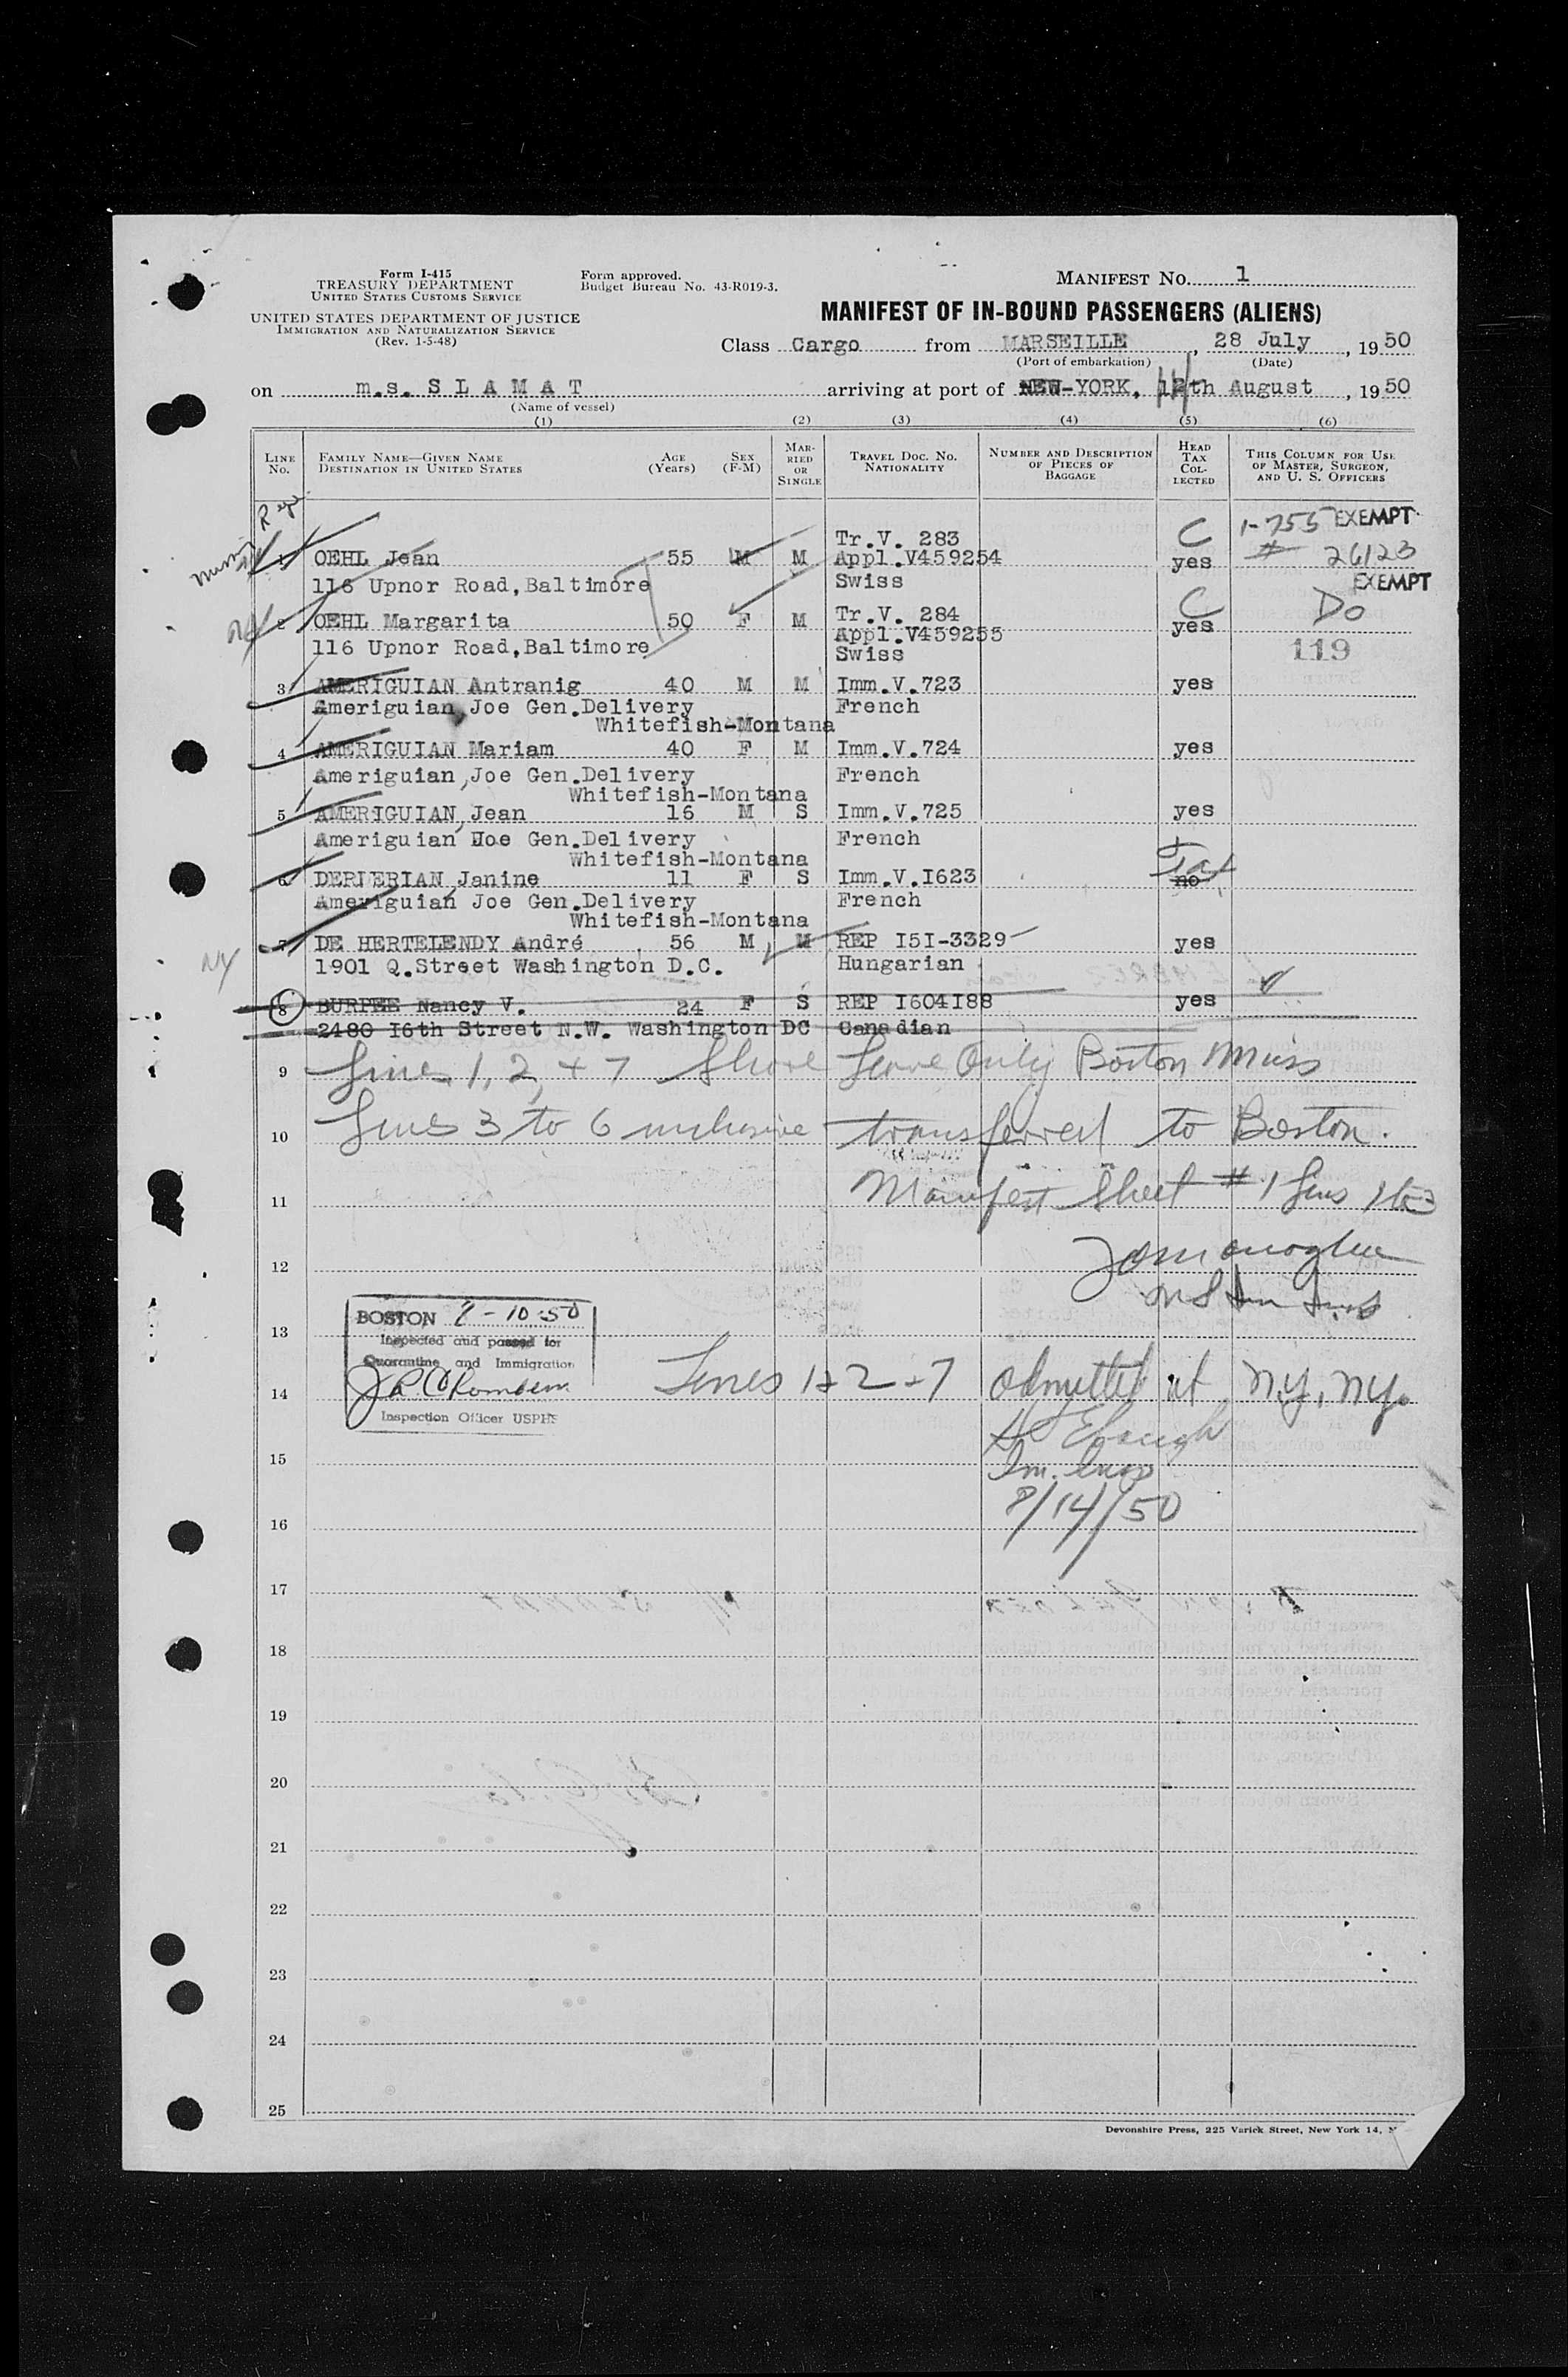 Form I-415
TREASURY DEPARTMENT
UNITED STATES CUSTOMS SERVICE
UNITED STATES DEPARTMENT OF JUSTICE
IMMIGRATION AND NATURALIZATION SERVICE
(Rev. 1-5-48)
Form approved.
Budget Bureau No. 43-R019-3.
MANIFEST No. 1
MANIFEST OF IN-BOUND PASSENGERS (ALIENS)
Class Cargo from MARSEILLE, 28 July, 1950
(Port of embarkation) (Date)
on m.s. S L A M A T arriving at port of NEW-YORK, 14th August, 1950
(Name of vessel)
(1) (2) (3) (4) (5) (6)
LINE No.
FAMILY NAME—GIVEN NAME
DESTINATION IN UNITED STATES
AGE (Years)
SEX (F-M)
MARRIED OR SINGLE
TRAVEL DOC. NO.
NATIONALITY
NUMBER AND DESCRIPTION OF PIECES OF BAGGAGE
HEAD TAX COLLECTED
THIS COLUMN FOR USE OF MASTER, SURGEON, AND U. S. OFFICERS
Tr.V. 283 C 1-755 EXEMPT
1 OEHL Jean 55 M M Appl.V459254 yes # 26123
116 Upnor Road,Baltimore Swiss EXEMPT
Tr.V. 284 C Do
2 OEHL Margarita 50 F M Appl.V459255 yes
116 Upnor Road,Baltimore Swiss 119
3 AMERIGUIAN Antranig 40 M M Imm.V.723 yes
Ameriguian Joe Gen.Delivery French
Whitefish-Montana
4 AMERIGUIAN Mariam 40 F M Imm.V.724 yes
Ameriguian,Joe Gen.Delivery French
Whitefish-Montana
5 AMERIGUIAN,Jean 16 M S Imm.V.725 yes
Ameriguian Hoe Gen.Delivery French
Whitefish-Montana Tax
6 DERDERIAN Janine 11 F S Imm.V.I623 no
Ameriguian Joe Gen.Delivery French
Whitefish-Montana
7 DE HERTELENDY André 56 M M REP I5I-3329 yes
NY 1901 Q.Street Washington D.C. Hungarian
8 BURPEE Nancy V. 24 F S REP I604I88 yes
2480 I6th Street N.W. Washington DC Canadian
9 Lines 1, 2, + 7 Shore Leave Only Boston Mass
10 Lines 3 to 6 inclusive transferred to Boston.
11 Manifest Sheet #1 lines 1 to 3
12
BOSTON 8-10-50
13
Inspected and passed for
Quarantine and Immigration
14 Lines 1 + 2 + 7 Admitted at N.Y, N.Y.
Inspection Officer USPHS
15 Im. Insp
16 8/14/50
17
18
19
20
21
22
23
24
25
Devonshire Press, 225 Varick Street, New York 14, N